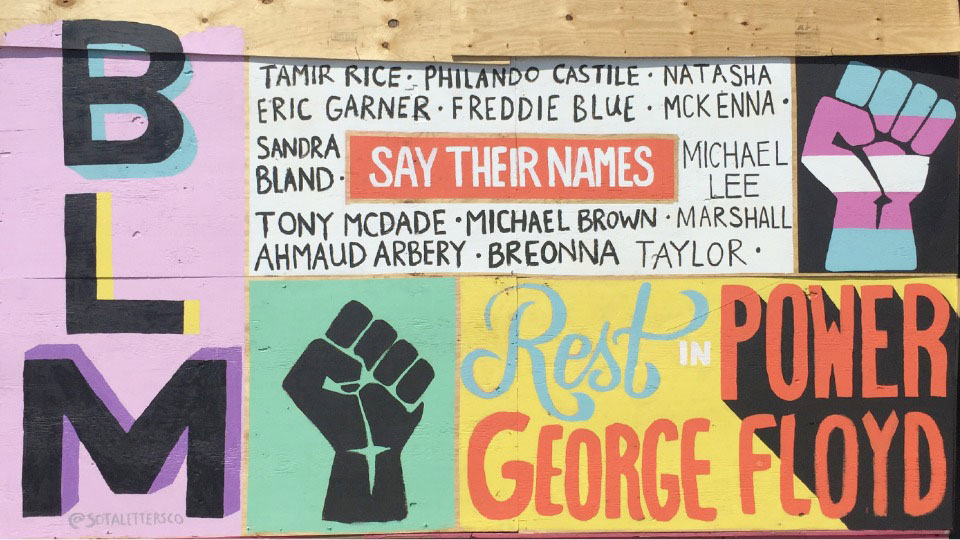 BLM
TAMIR RICE · PHILANDO CASTILE · NATASHA
ERIC GARNER · FREDDIE BLUE · MCKENNA ·
SANDRA
BLAND ·
SAY THEIR NAMES
MICHAEL
LEE
TONY MCDADE · MICHAEL BROWN · MARSHALL
AHMAUD ARBERY · BREONNA TAYLOR ·
Rest IN POWER
GEORGE FLOYD
@SOTALETTERSCO